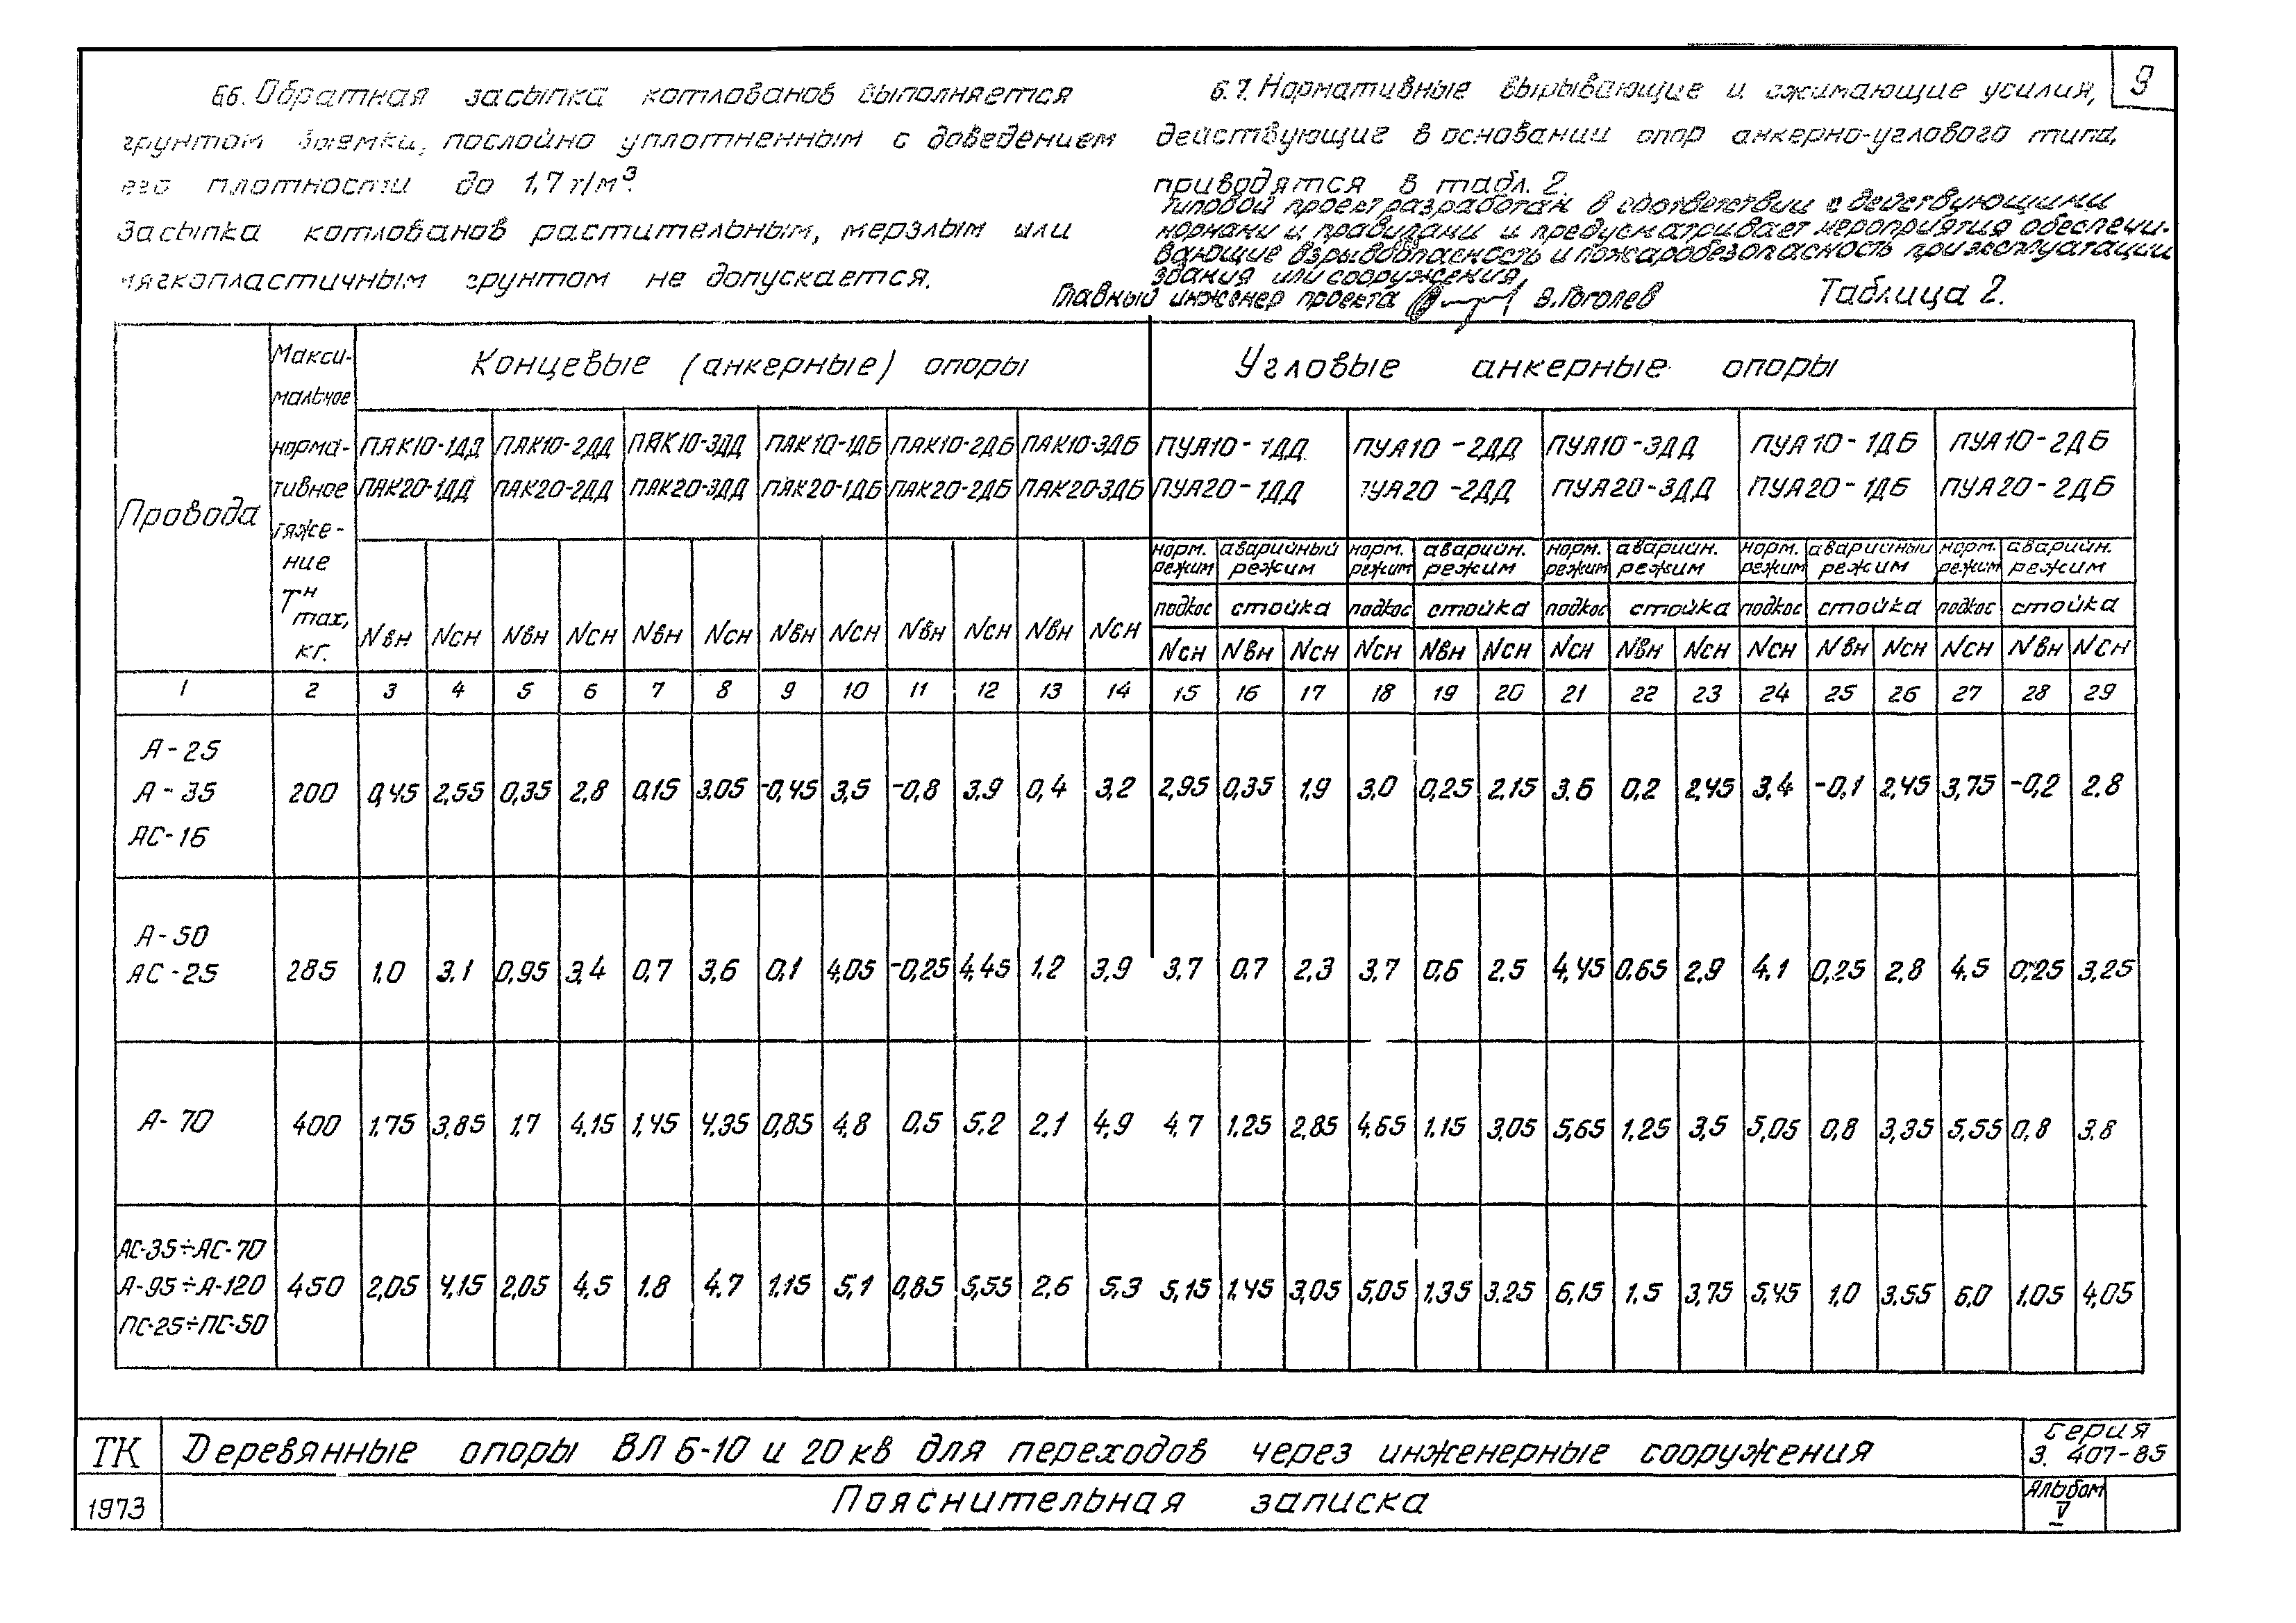 9
6.6. Обратная засыпка котлованов выполняется
грунтом выемки, послойно уплотненным с доведением
его плотности до 1,7 т/м³.
Засыпка котлованов растительным, мерзлым или
мягкопластичным грунтом не допускается.
6.7. Нормативные вырывающие и сжимающие усилия,
действующие в основании опор анкерно-углового типа,
приводятся в табл. 2.
Типовой проект разработан в соответствии с действующими
нормами и правилами и предусматривает мероприятия обеспечи-
вающие взрывоопасность и пожаробезопасность при эксплуатации
здания или сооружения
Главный инженер проекта В. Гоголев
Таблица 2.
Провода
Макси-
мальное
норма-
тивное
тяже-
ние
Tн max,
кг.
Концевые (анкерные) опоры
Угловые анкерные опоры
ПАК10-1ДД ПАК10-2ДД ПАК10-3ДД ПАК10-1ДБ ПАК10-2ДБ ПАК10-3ДБ ПУА10-1ДД ПУА10-2ДД ПУА10-3ДД ПУА10-1ДБ ПУА10-2ДБ
ПАК20-1ДД ПАК20-2ДД ПАК20-3ДД ПАК20-1ДБ ПАК20-2ДБ ПАК20-3ДБ ПУА20-1ДД ПУА20-2ДД ПУА20-3ДД ПУА20-1ДБ ПУА20-2ДБ
норм. аварийный норм. аварийн. норм. аварийн. норм. аварийный норм. аварийн.
режим режим режим режим режим режим режим режим режим режим
подкос стойка подкос стойка подкос стойка подкос стойка подкос стойка
Nвн Nсн Nвн Nсн Nвн Nсн Nвн Nсн Nвн Nсн Nвн Nсн Nсн Nвн Nсн Nсн Nвн Nсн Nсн Nвн Nсн Nсн Nвн Nсн Nсн Nвн Nсн
1 2 3 4 5 6 7 8 9 10 11 12 13 14 15 16 17 18 19 20 21 22 23 24 25 26 27 28 29
А-25
А-35 200 0,45 2,55 0,35 2,8 0,15 3,05 -0,45 3,5 -0,8 3,9 0,4 3,2 2,95 0,35 1,9 3,0 0,25 2,15 3,6 0,2 2,45 3,4 -0,1 2,45 3,75 -0,2 2,8
АС-16
А-50
АС-25 285 1,0 3,1 0,95 3,4 0,7 3,6 0,1 4,05 -0,25 4,45 1,2 3,9 3,7 0,7 2,3 3,7 0,6 2,5 4,45 0,65 2,9 4,1 0,25 2,8 4,5 0,25 3,25
А-70 400 1,75 3,85 1,7 4,15 1,45 4,35 0,85 4,8 0,5 5,2 2,1 4,9 4,7 1,25 2,85 4,65 1,15 3,05 5,65 1,25 3,5 5,05 0,8 3,35 5,55 0,8 3,8
АС-35÷АС-70
А-95÷А-120 450 2,05 4,15 2,05 4,5 1,8 4,7 1,15 5,1 0,85 5,55 2,6 5,3 5,15 1,45 3,05 5,05 1,35 3,25 6,15 1,5 3,75 5,45 1,0 3,55 6,0 1,05 4,05
ПС-25÷ПС-50
ТК
1973
Деревянные опоры ВЛ 6-10 и 20 кв для переходов через инженерные сооружения
Пояснительная записка
Серия
3. 407-85
Альбом
V